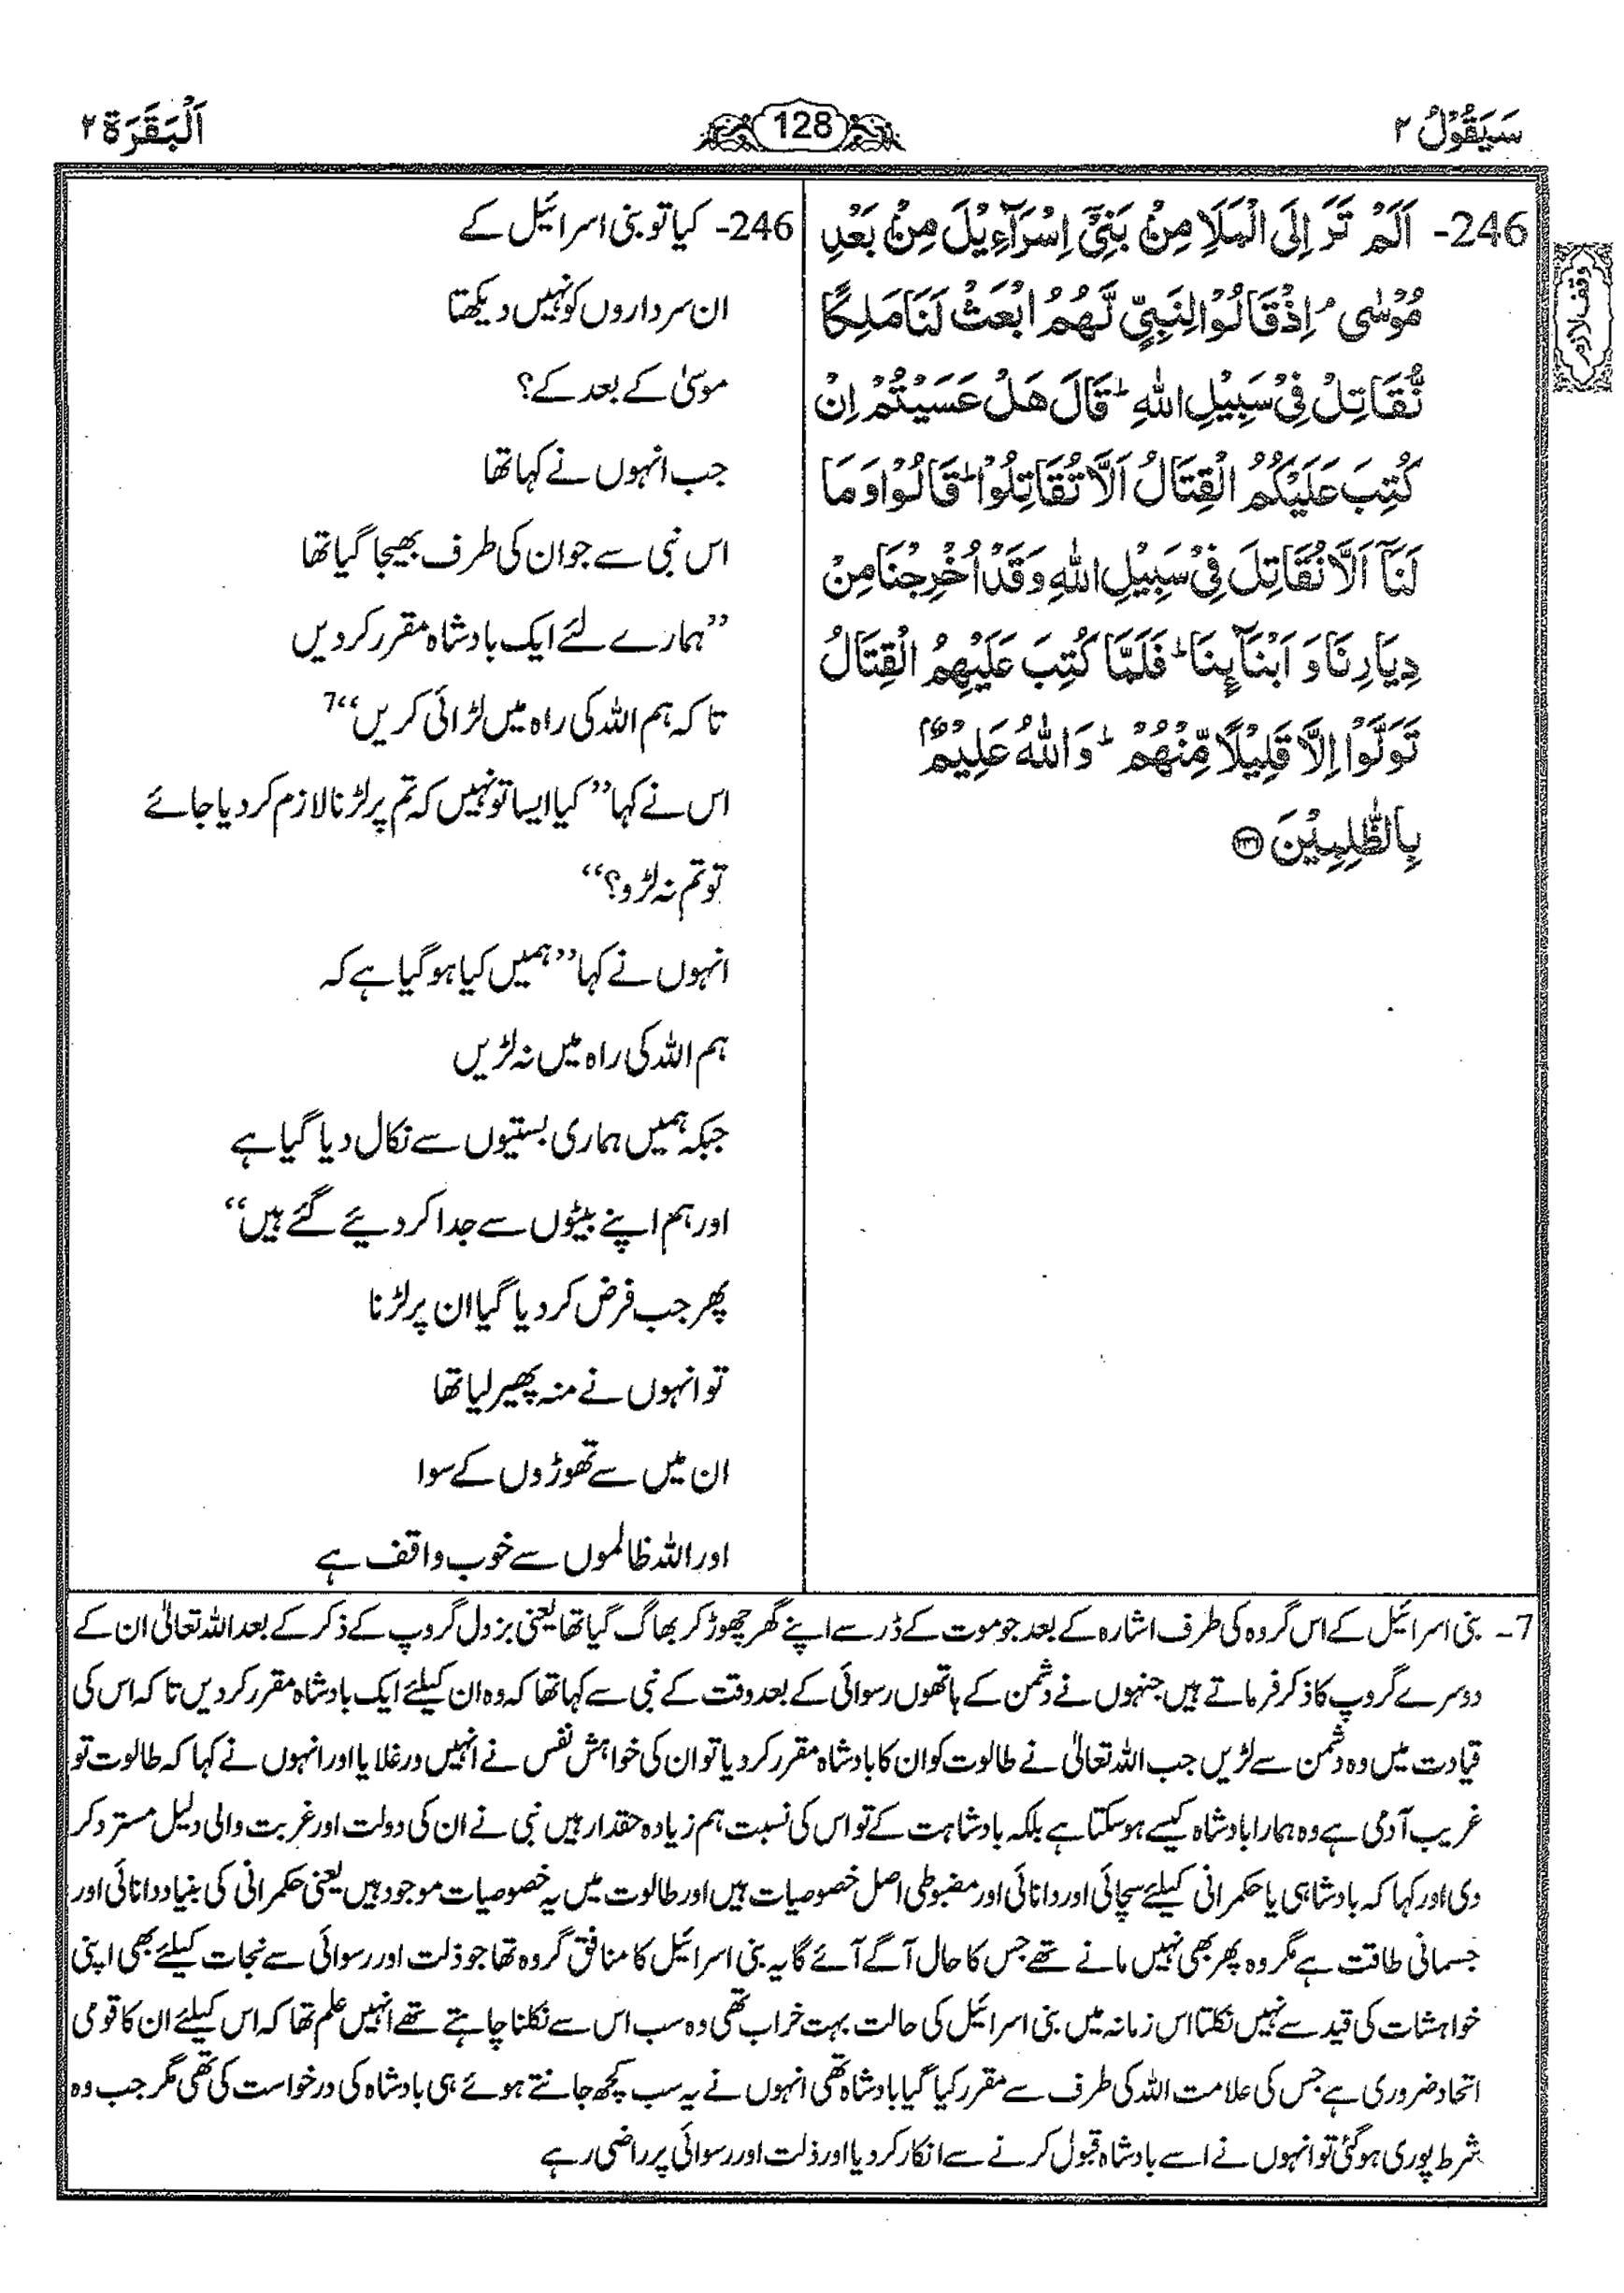 سَيَقُوْلُ ٢
128
اَلْبَقَرَة ٢
وقف لازم
246- اَلَمْ تَرَ اِلَى الْمَلَاِ مِنْۢ بَنِيْٓ اِسْرَآءِيْلَ مِنْۢ بَعْدِ
مُوْسٰى ۘ اِذْ قَالُوْا لِنَبِيٍّ لَّهُمُ ابْعَثْ لَنَا مَلِكًا
نُّقَاتِلْ فِيْ سَبِيْلِ اللّٰهِ ؕ قَالَ هَلْ عَسَيْتُمْ اِنْ
كُتِبَ عَلَيْكُمُ الْقِتَالُ اَلَّا تُقَاتِلُوْا ؕ قَالُوْا وَمَا
لَنَآ اَلَّا نُقَاتِلَ فِيْ سَبِيْلِ اللّٰهِ وَقَدْ اُخْرِجْنَا مِنْ
دِيَارِنَا وَ اَبْنَآىِٕنَا ؕ فَلَمَّا كُتِبَ عَلَيْهِمُ الْقِتَالُ
تَوَلَّوْا اِلَّا قَلِيْلًا مِّنْهُمْ ؕ وَاللّٰهُ عَلِيْمٌۢ
بِالظّٰلِمِيْنَ ﴿۲۴۶﴾
246- کیا تو بنی اسرائیل کے
ان سرداروں کو نہیں دیکھتا
موسیٰ کے بعد کے؟
جب انہوں نے کہا تھا
اس نبی سے جو ان کی طرف بھیجا گیا تھا
’’ہمارے لئے ایک بادشاہ مقرر کر دیں
تاکہ ہم اللہ کی راہ میں لڑائی کریں‘‘7
اس نے کہا ’’کیا ایسا تو نہیں کہ تم پر لڑنا لازم کر دیا جائے
تو تم نہ لڑو؟‘‘
انہوں نے کہا ’’ہمیں کیا ہو گیا ہے کہ
ہم اللہ کی راہ میں نہ لڑیں
جبکہ ہمیں ہماری بستیوں سے نکال دیا گیا ہے
اور ہم اپنے بیٹوں سے جدا کر دیئے گئے ہیں‘‘
پھر جب فرض کر دیا گیا ان پر لڑنا
تو انہوں نے منہ پھیر لیا تھا
ان میں سے تھوڑوں کے سوا
اور اللہ ظالموں سے خوب واقف ہے
7- بنی اسرائیل کے اس گروہ کی طرف اشارہ کے بعد جو موت کے ڈر سے اپنے گھر چھوڑ کر بھاگ گیا تھا یعنی بزدل گروپ کے ذکر کے بعد اللہ تعالیٰ ان کے
دوسرے گروپ کا ذکر فرماتے ہیں جنہوں نے دشمن کے ہاتھوں رسوائی کے بعد وقت کے نبی سے کہا تھا کہ وہ ان کیلئے ایک بادشاہ مقرر کر دیں تاکہ اس کی
قیادت میں وہ دشمن سے لڑیں جب اللہ تعالیٰ نے طالوت کو ان کا بادشاہ مقرر کر دیا تو ان کی خواہش نفس نے انہیں ورغلایا اور انہوں نے کہا کہ طالوت تو
غریب آدمی ہے وہ ہمارا بادشاہ کیسے ہو سکتا ہے بلکہ بادشاہت کے تو اس کی نسبت ہم زیادہ حقدار ہیں نبی نے ان کی دولت اور غربت والی دلیل مسترد کر
دی اور کہا کہ بادشاہی یا حکمرانی کیلئے سچائی اور دانائی اور مضبوطی اصل خصوصیات ہیں اور طالوت میں یہ خصوصیات موجود ہیں یعنی حکمرانی کی بنیاد دانائی اور
جسمانی طاقت ہے مگر وہ پھر بھی نہیں مانے تھے جس کا حال آگے آئے گا یہ بنی اسرائیل کا منافق گروہ تھا جو ذلت اور رسوائی سے نجات کیلئے بھی اپنی
خواہشات کی قید سے نہیں نکلتا اس زمانہ میں بنی اسرائیل کی حالت بہت خراب تھی وہ سب اس سے نکلنا چاہتے تھے انہیں علم تھا کہ اس کیلئے ان کا قومی
اتحاد ضروری ہے جس کی علامت اللہ کی طرف سے مقرر کیا گیا بادشاہ تھی انہوں نے یہ سب کچھ جانتے ہوئے ہی بادشاہ کی درخواست کی تھی مگر جب وہ
شرط پوری ہو گئی تو انہوں نے اسے بادشاہ قبول کرنے سے انکار کر دیا اور ذلت اور رسوائی پر راضی رہے